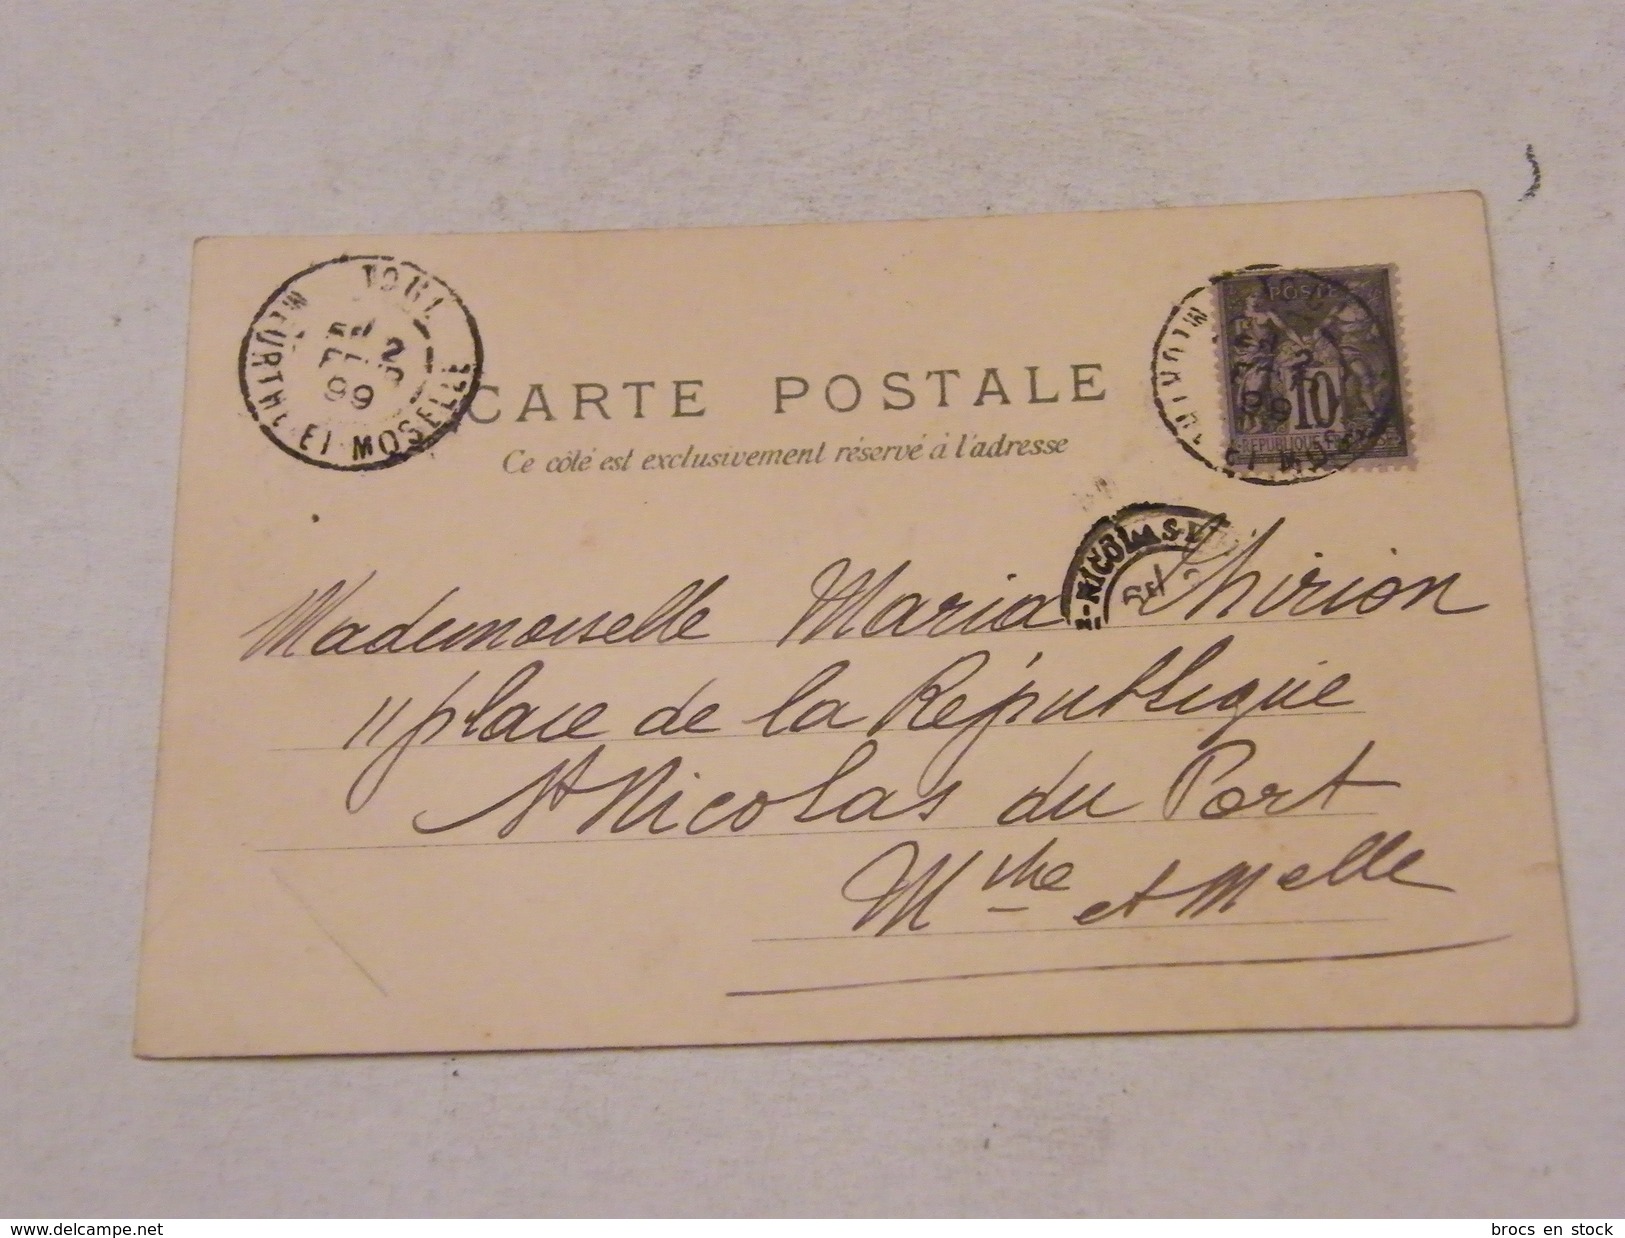 TOUL
MEURTHE ET MOSELLE
99
CARTE POSTALE
Ce côté est exclusivement réservé à l'adresse
POSTES
10
REPUBLIQUE FRANÇAISE
Mademoiselle Maria Thirion
11 place de la République
St Nicolas du Port
Mthe et Melle
delcampe.net
brocs en stock